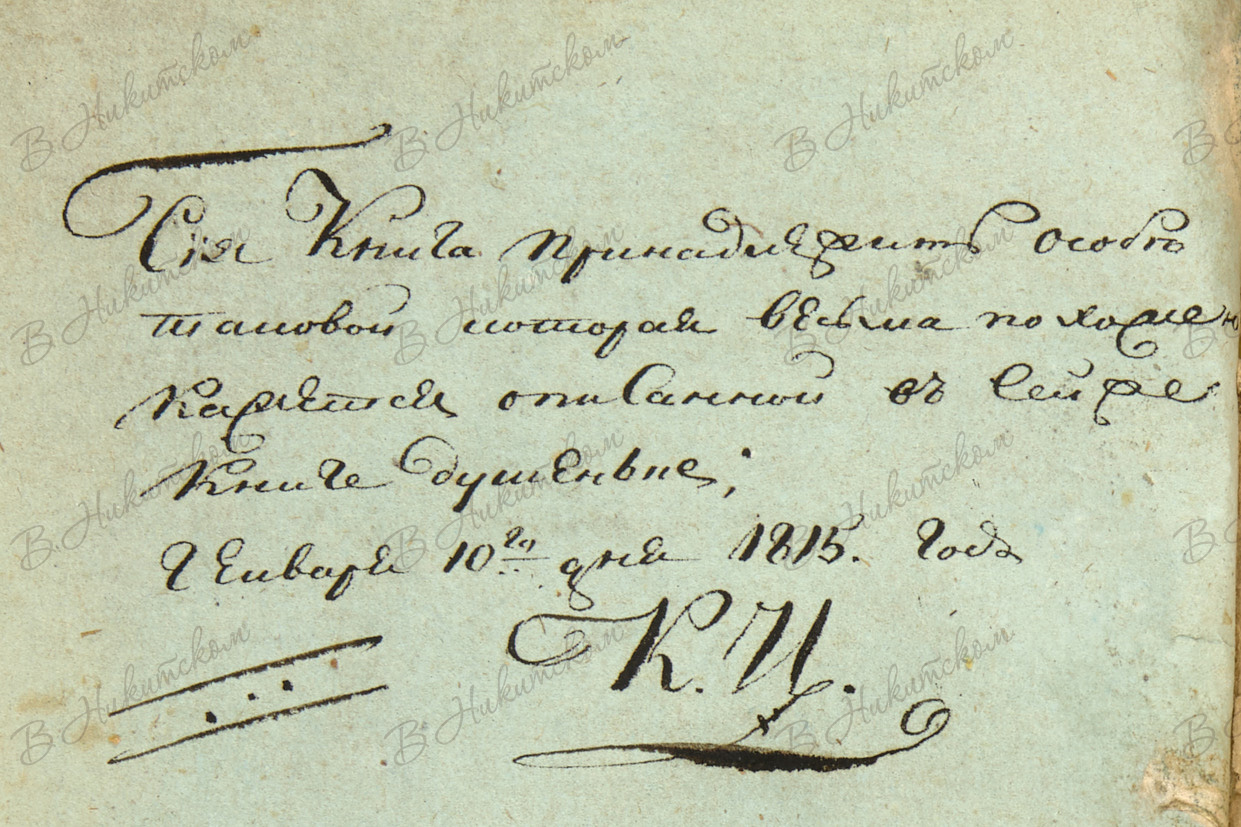 Сія Книга принадлежитъ особѣ
таковой которая весьма похожею
кажется описанной въ сей же
Книге душеньке;
Генваря 10го дня 1815. Годъ
К. Ц.
В Никитском